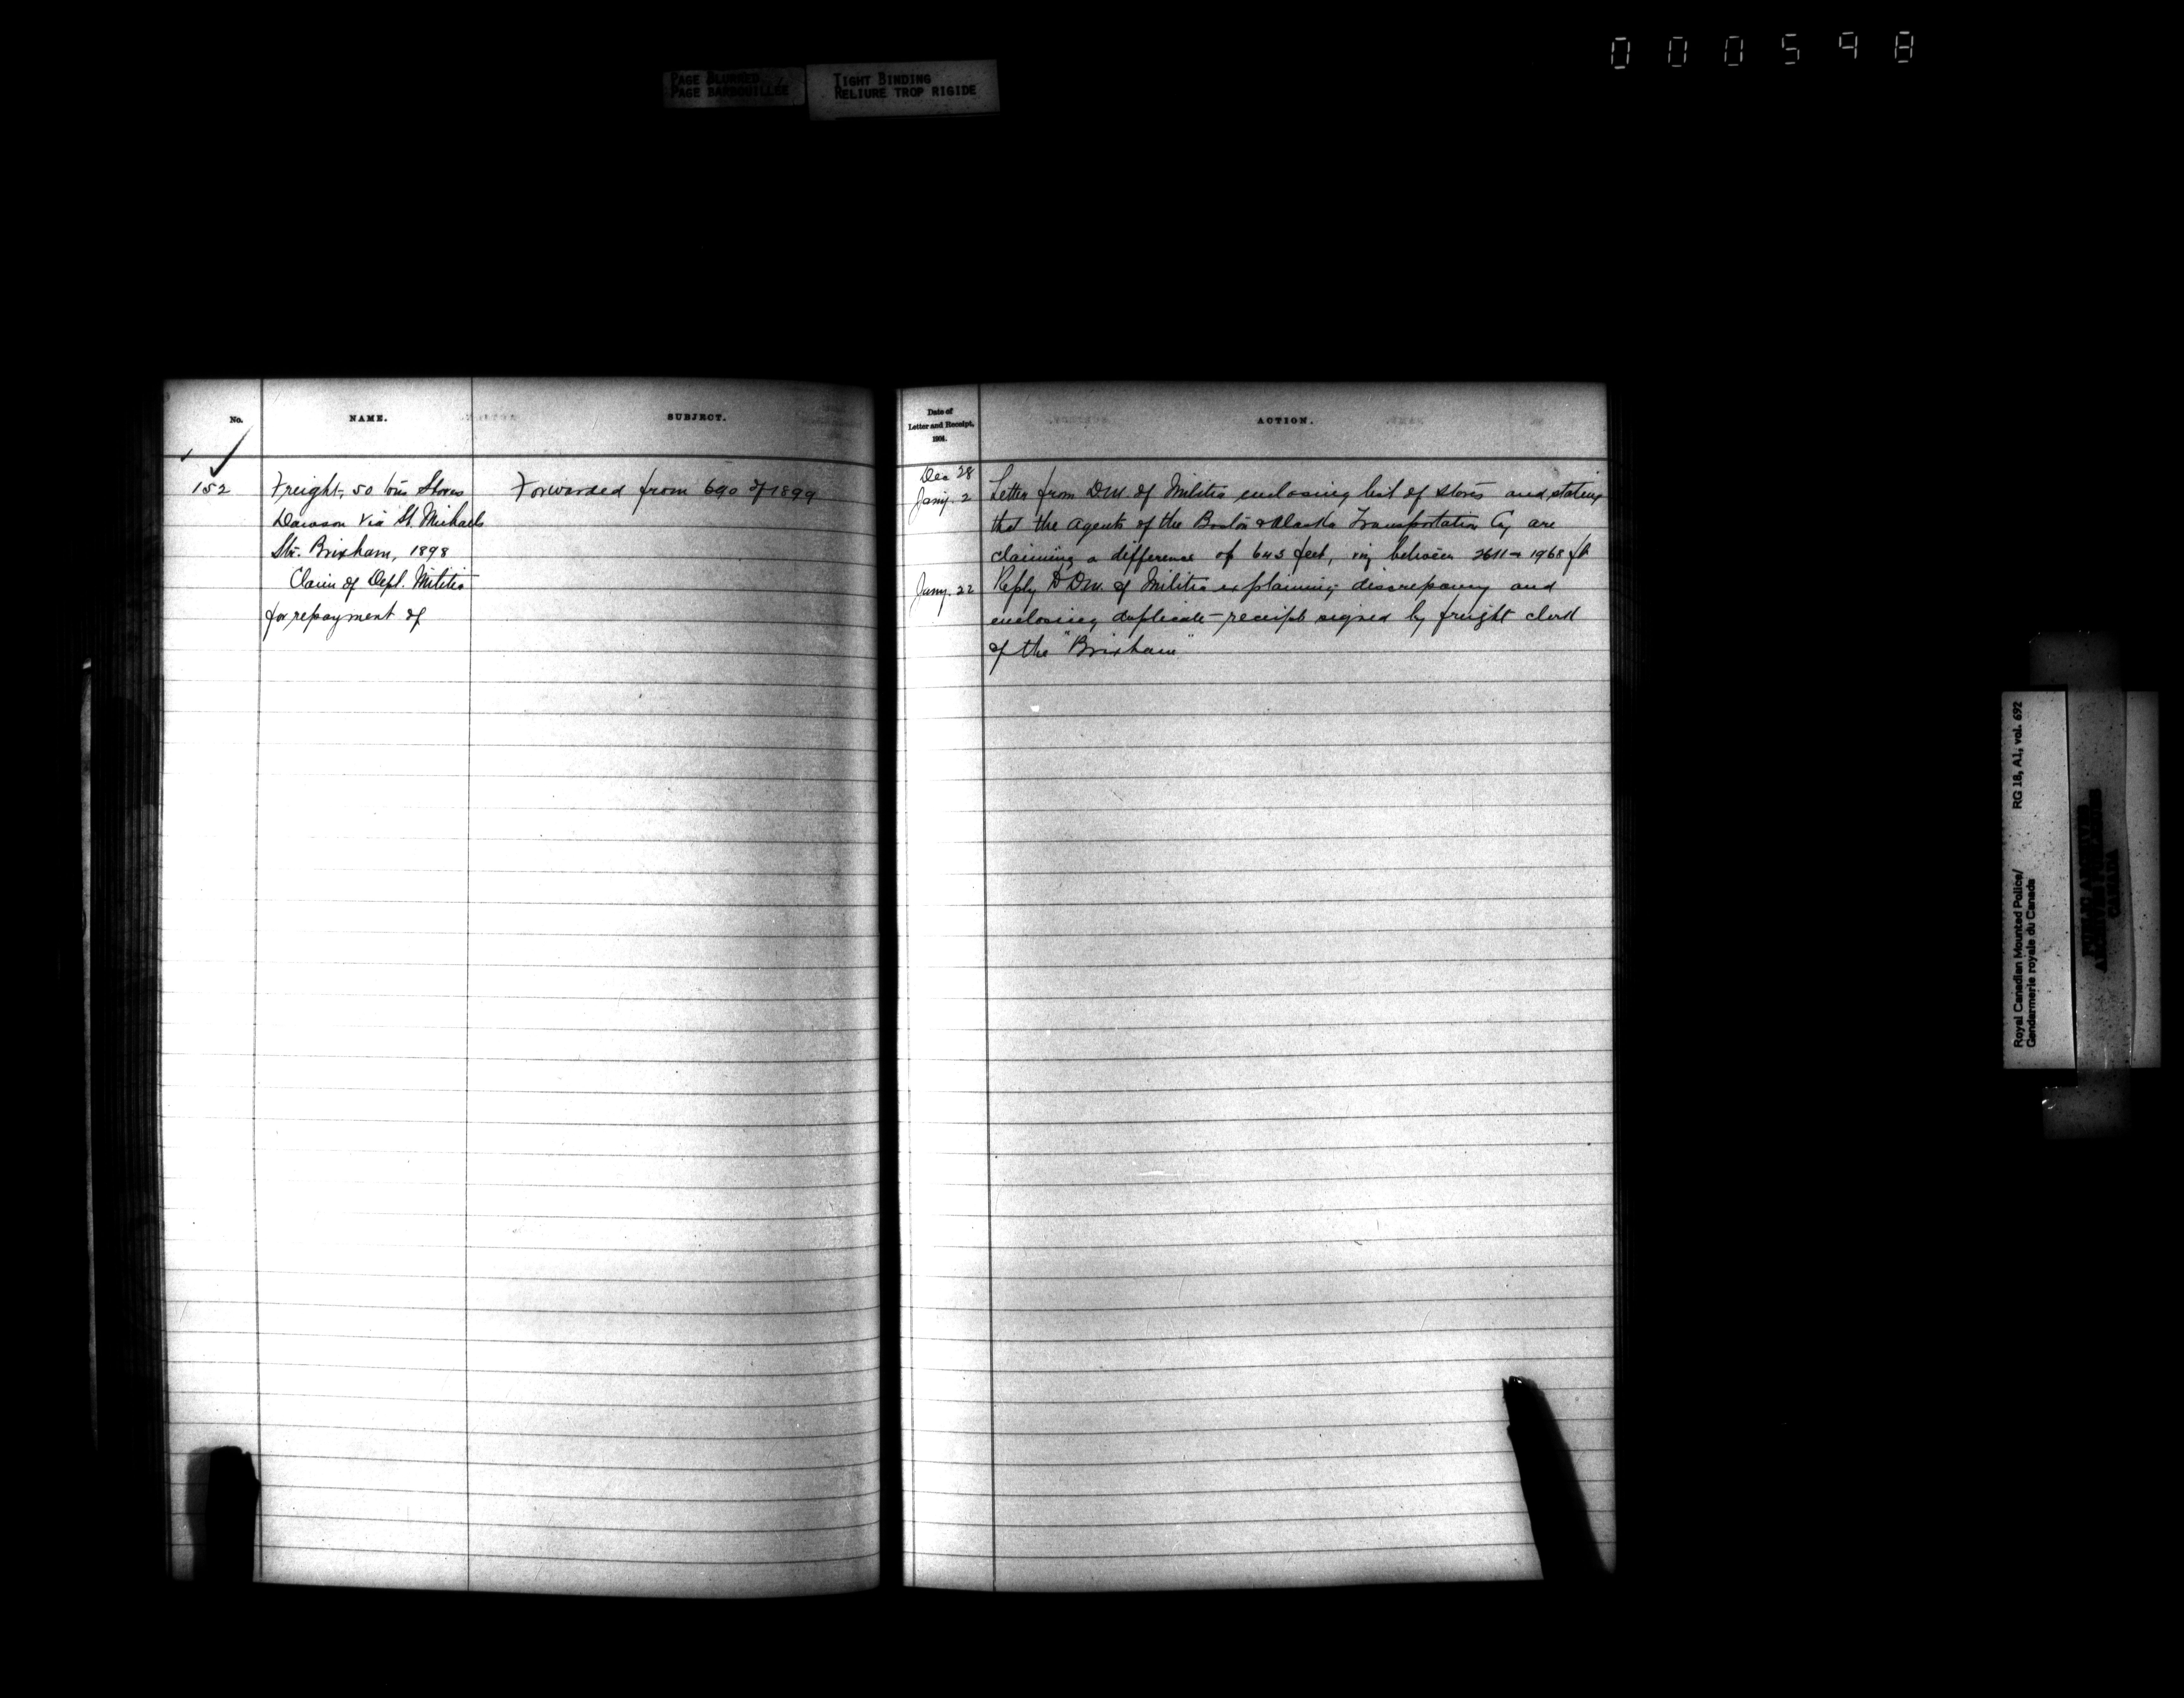 000598
PAGE BLURRED
PAGE BARBOUILLÉE
TIGHT BINDING
RELIURE TROP RIGIDE
No.
NAME.
SUBJECT.
152
Freight, 50 tons Stores
Dawson via St. Michaels
Str. Brixham, 1898
Claim of Dept. Militia
for repayment of
Forwarded from 690 of 1899
Date of
Letter and Receipt,
1901.
ACTION.
Dec 28
Jany. 2
Letter from D.M. of Militia enclosing list of stores and stating
that the agents of the Boston & Alaska Transportation Cy are
claiming a difference of 643 feet, viz between 2611 & 1968 ft
Jany. 22
Reply to D.M. of Militia explaining discrepancy and
enclosing duplicate receipt signed by freight clerk
of the "Brixham"
Royal Canadian Mounted Police/
Gendarmerie royale du Canada
RG 18, A1, vol. 692
PUBLIC ARCHIVES
ARCHIVES PUBLIQUES
CANADA